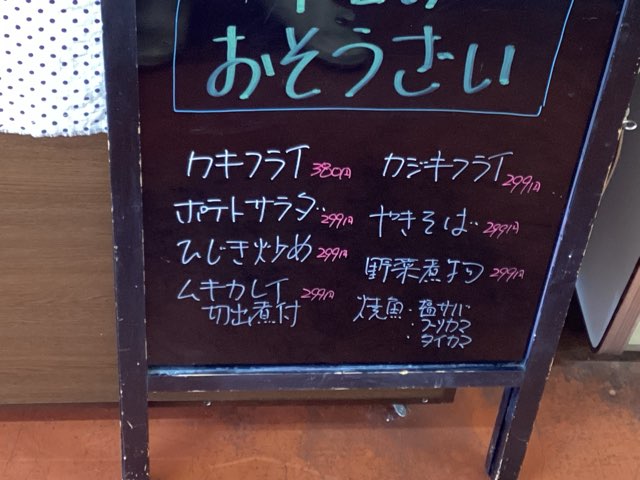 おそうざい
カキフライ 380円
ポテトサラダ 299円
ひじき炒め 299円
ムキカレイ 299円
切出煮付
カジキフライ 299円
やきそば 299円
野菜煮物 299円
焼魚・塩サバ
・ブリカマ
・タイカマ